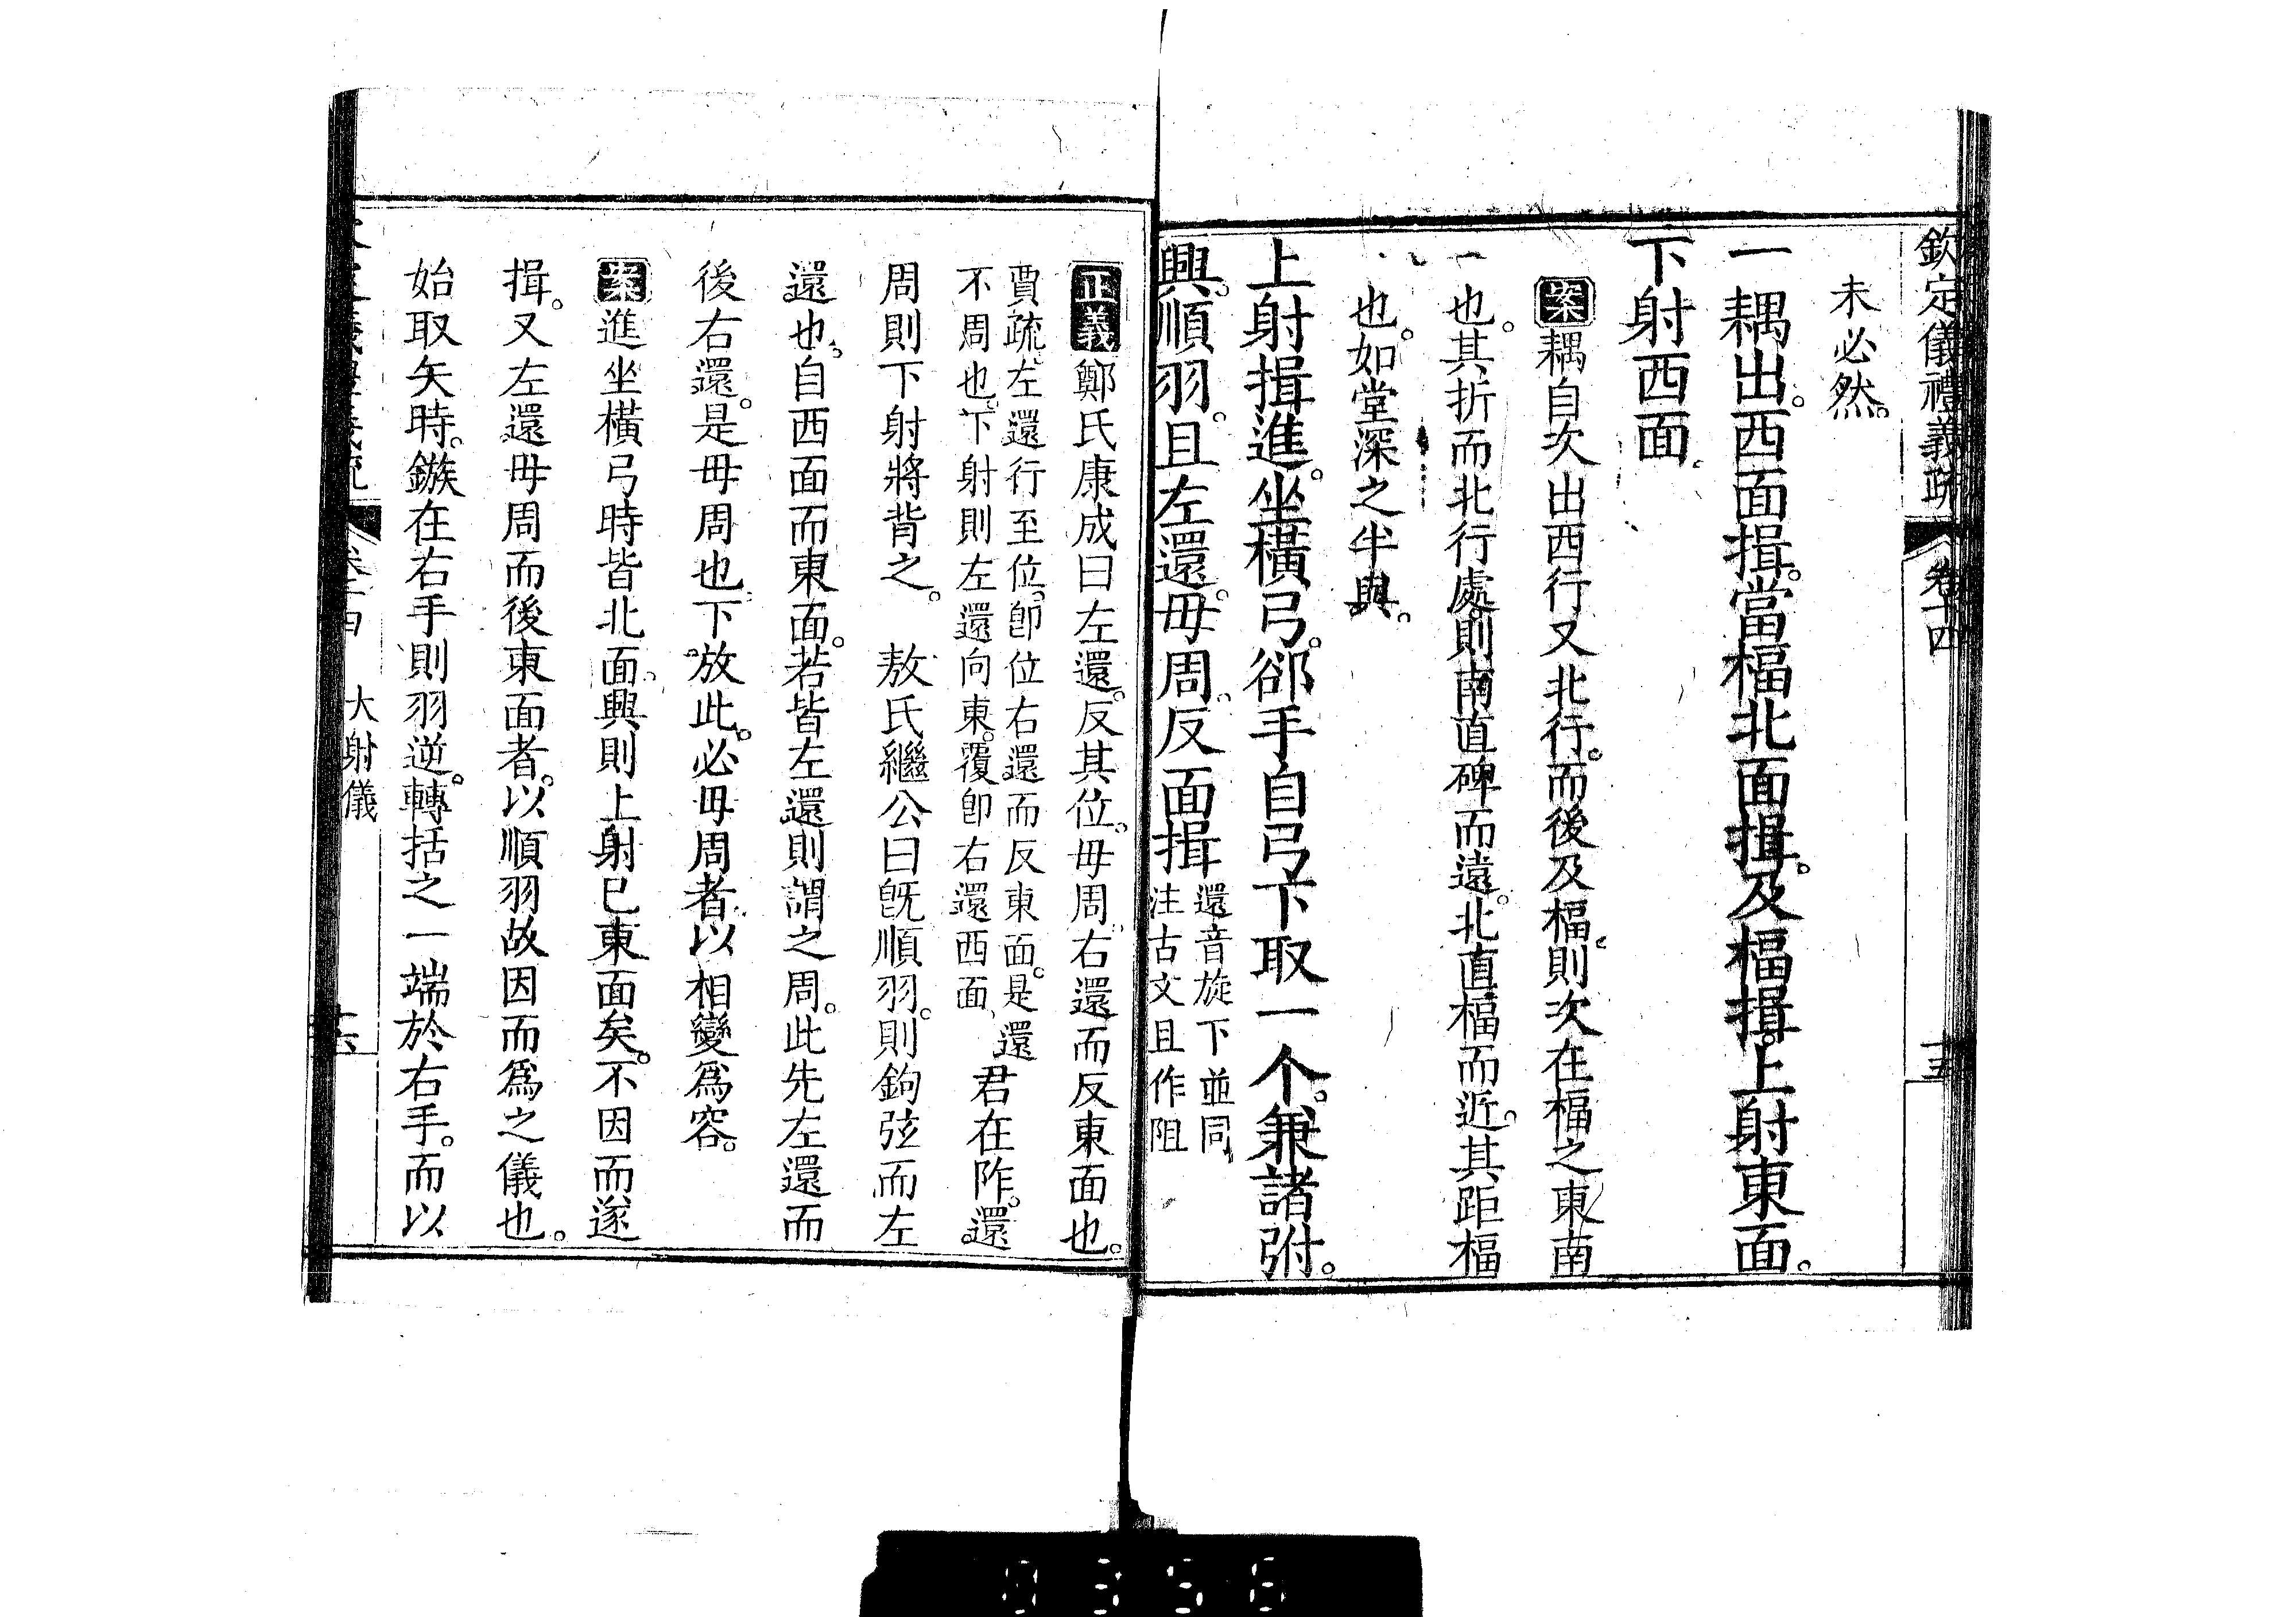 欽定儀禮義疏 卷十四 十五
未必然。
一耦出。西面揖。當楅北面揖。及楅揖。上射東面。
下射西面。
案耦自次出西行又北行。而後及楅。則次在楅之東南
也。其折而北行處。則南直碑而遠。北直楅而近。其距楅
也。如堂深之半與。
上射揖進。坐橫弓。郤手自弓下取一个。兼諸弣。
興。順羽。且左還。毋周。反面揖
還音旋下並同
注古文且作阻
正義鄭氏康成曰左還。反其位。毋周。右還而反東面也。
賈疏。左還行至位。卽位右還而反東面。是還
不周也。下射則左還向東。覆卽右還西面
君在阼。還
周則下射將背之。 敖氏繼公曰旣順羽。則鉤弦而左
還也。自西面而東面。若皆左還則謂之周。此先左還而
後右還。是毋周也。下放此。必毋周者。以相變爲容。
案進坐橫弓時皆北面。興則上射已東面矣。不因而遂
揖。又左還毋周而後東面者。以順羽故因而爲之儀也。
始取矢時。鏃在右手則羽逆。轉括之一端於右手。而以
大射儀
0358